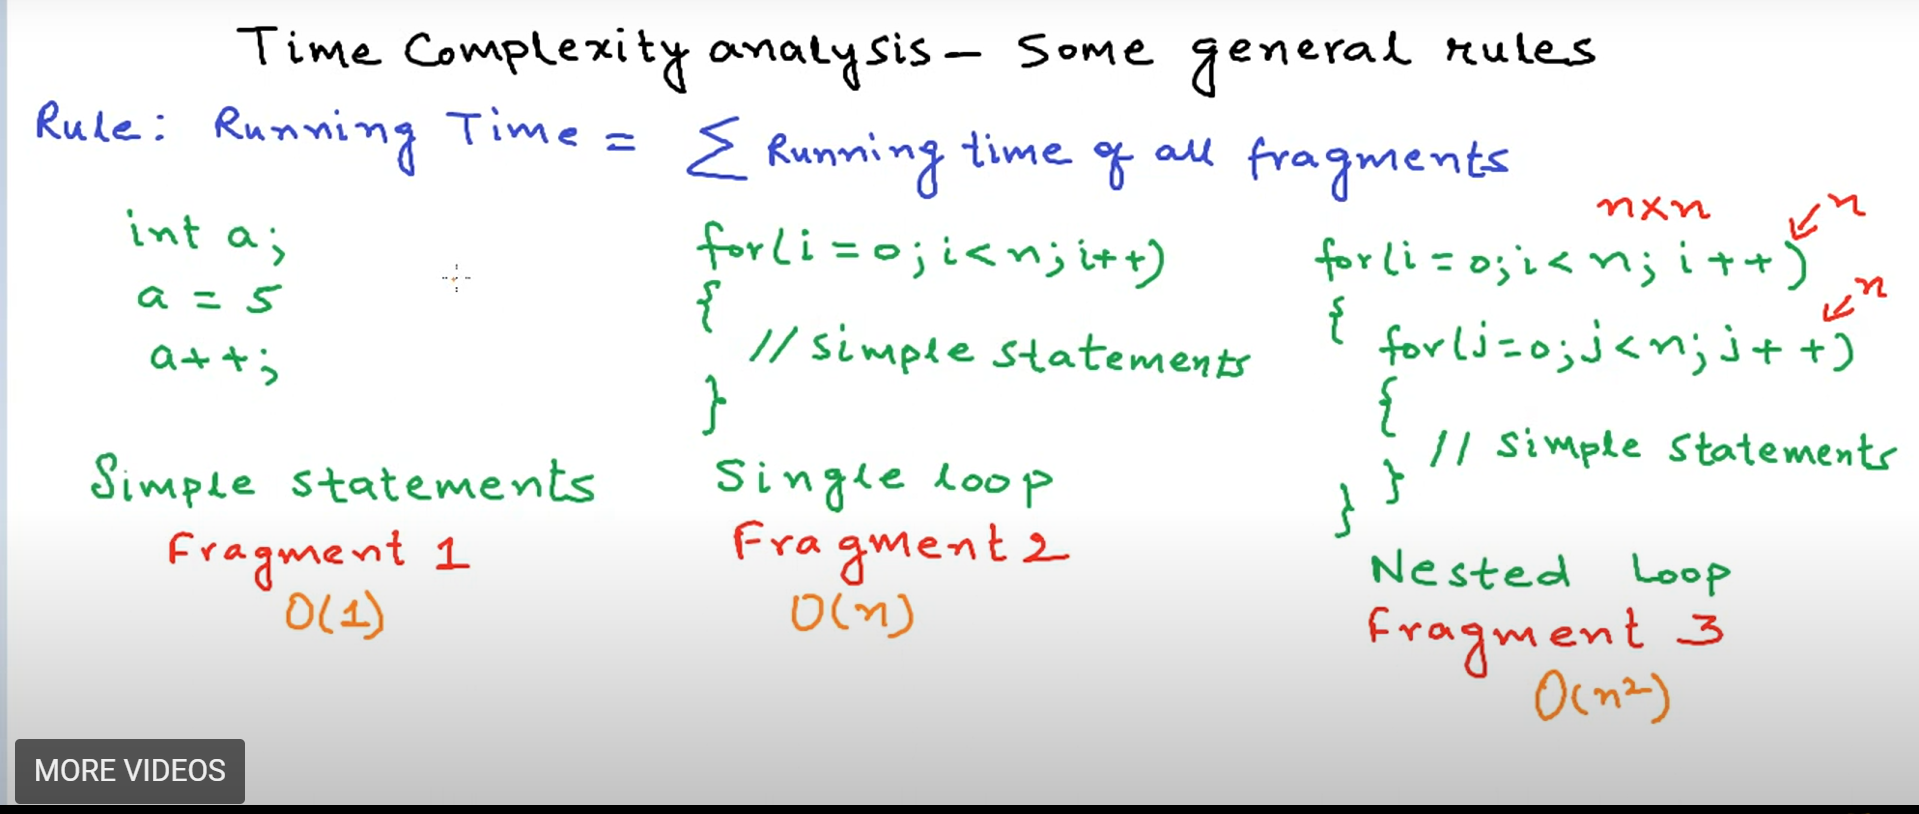 Time Complexity analysis – Some general rules
Rule: Running Time = ∑ Running time of all fragments
int a;
a = 5
a++;
Simple statements
Fragment 1
O(1)
for(i=0;i<n;i++)
{
// simple statements
}
Single loop
Fragment 2
O(n)
n×n
n
for(i=0;i<n;i++)
n
{
for(j=0;j<n;j++)
{
// simple statements
}
}
Nested Loop
Fragment 3
O(n²)
MORE VIDEOS